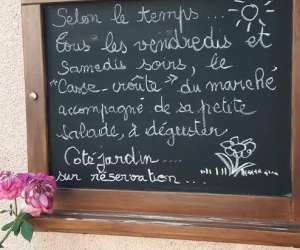 Selon le temps...
tous les vendredis et
Samedis soirs, le
"Casse-croûte" du marché
accompagné de sa petite
salade, à déguster
Coté jardin....
sur réservation...